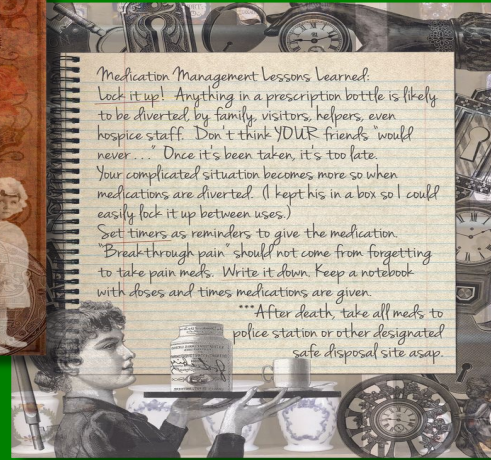 Medication Management Lessons Learned:
Lock it up! Anything in a prescription bottle is likely
to be diverted, by family, visitors, helpers, even
hospice staff. Don't think YOUR friends "would
never . . ." Once it's been taken, it's too late.
Your complicated situation becomes more so when
medications are diverted. (I kept his in a box so I could
easily lock it up between uses.)
Set timers as reminders to give the medication.
"Breakthrough pain" should not come from forgetting
to take pain meds. Write it down. Keep a notebook
with doses and times medications are given.
***After death, take all meds to
police station or other designated
safe disposal site asap.